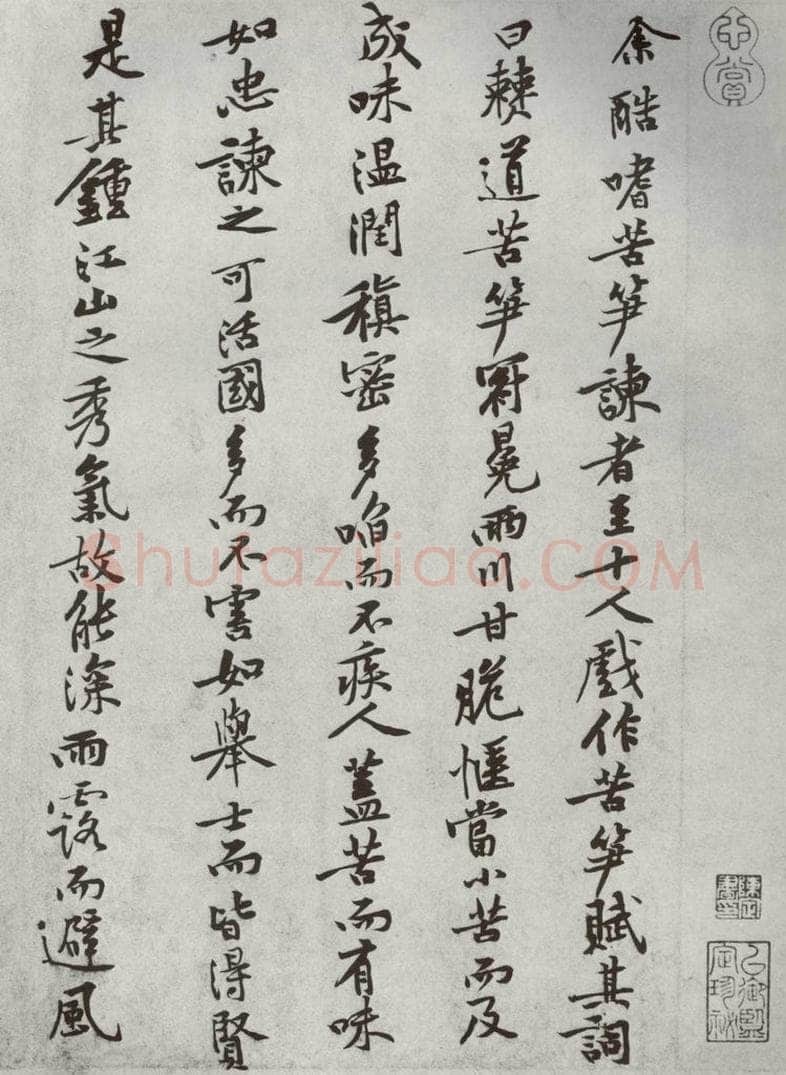 余酷嗜苦笋諫者至十人戲作苦笋賦其詞
曰僰道苦笋冠冕兩川甘脆愜當小苦而及
成味温潤稹密多啗而不疾人蓋苦而有味
如忠諫之可活國多而不害如舉士而皆得賢
是其鍾江山之秀氣故能深雨露而避風
Shufaziliao.COM